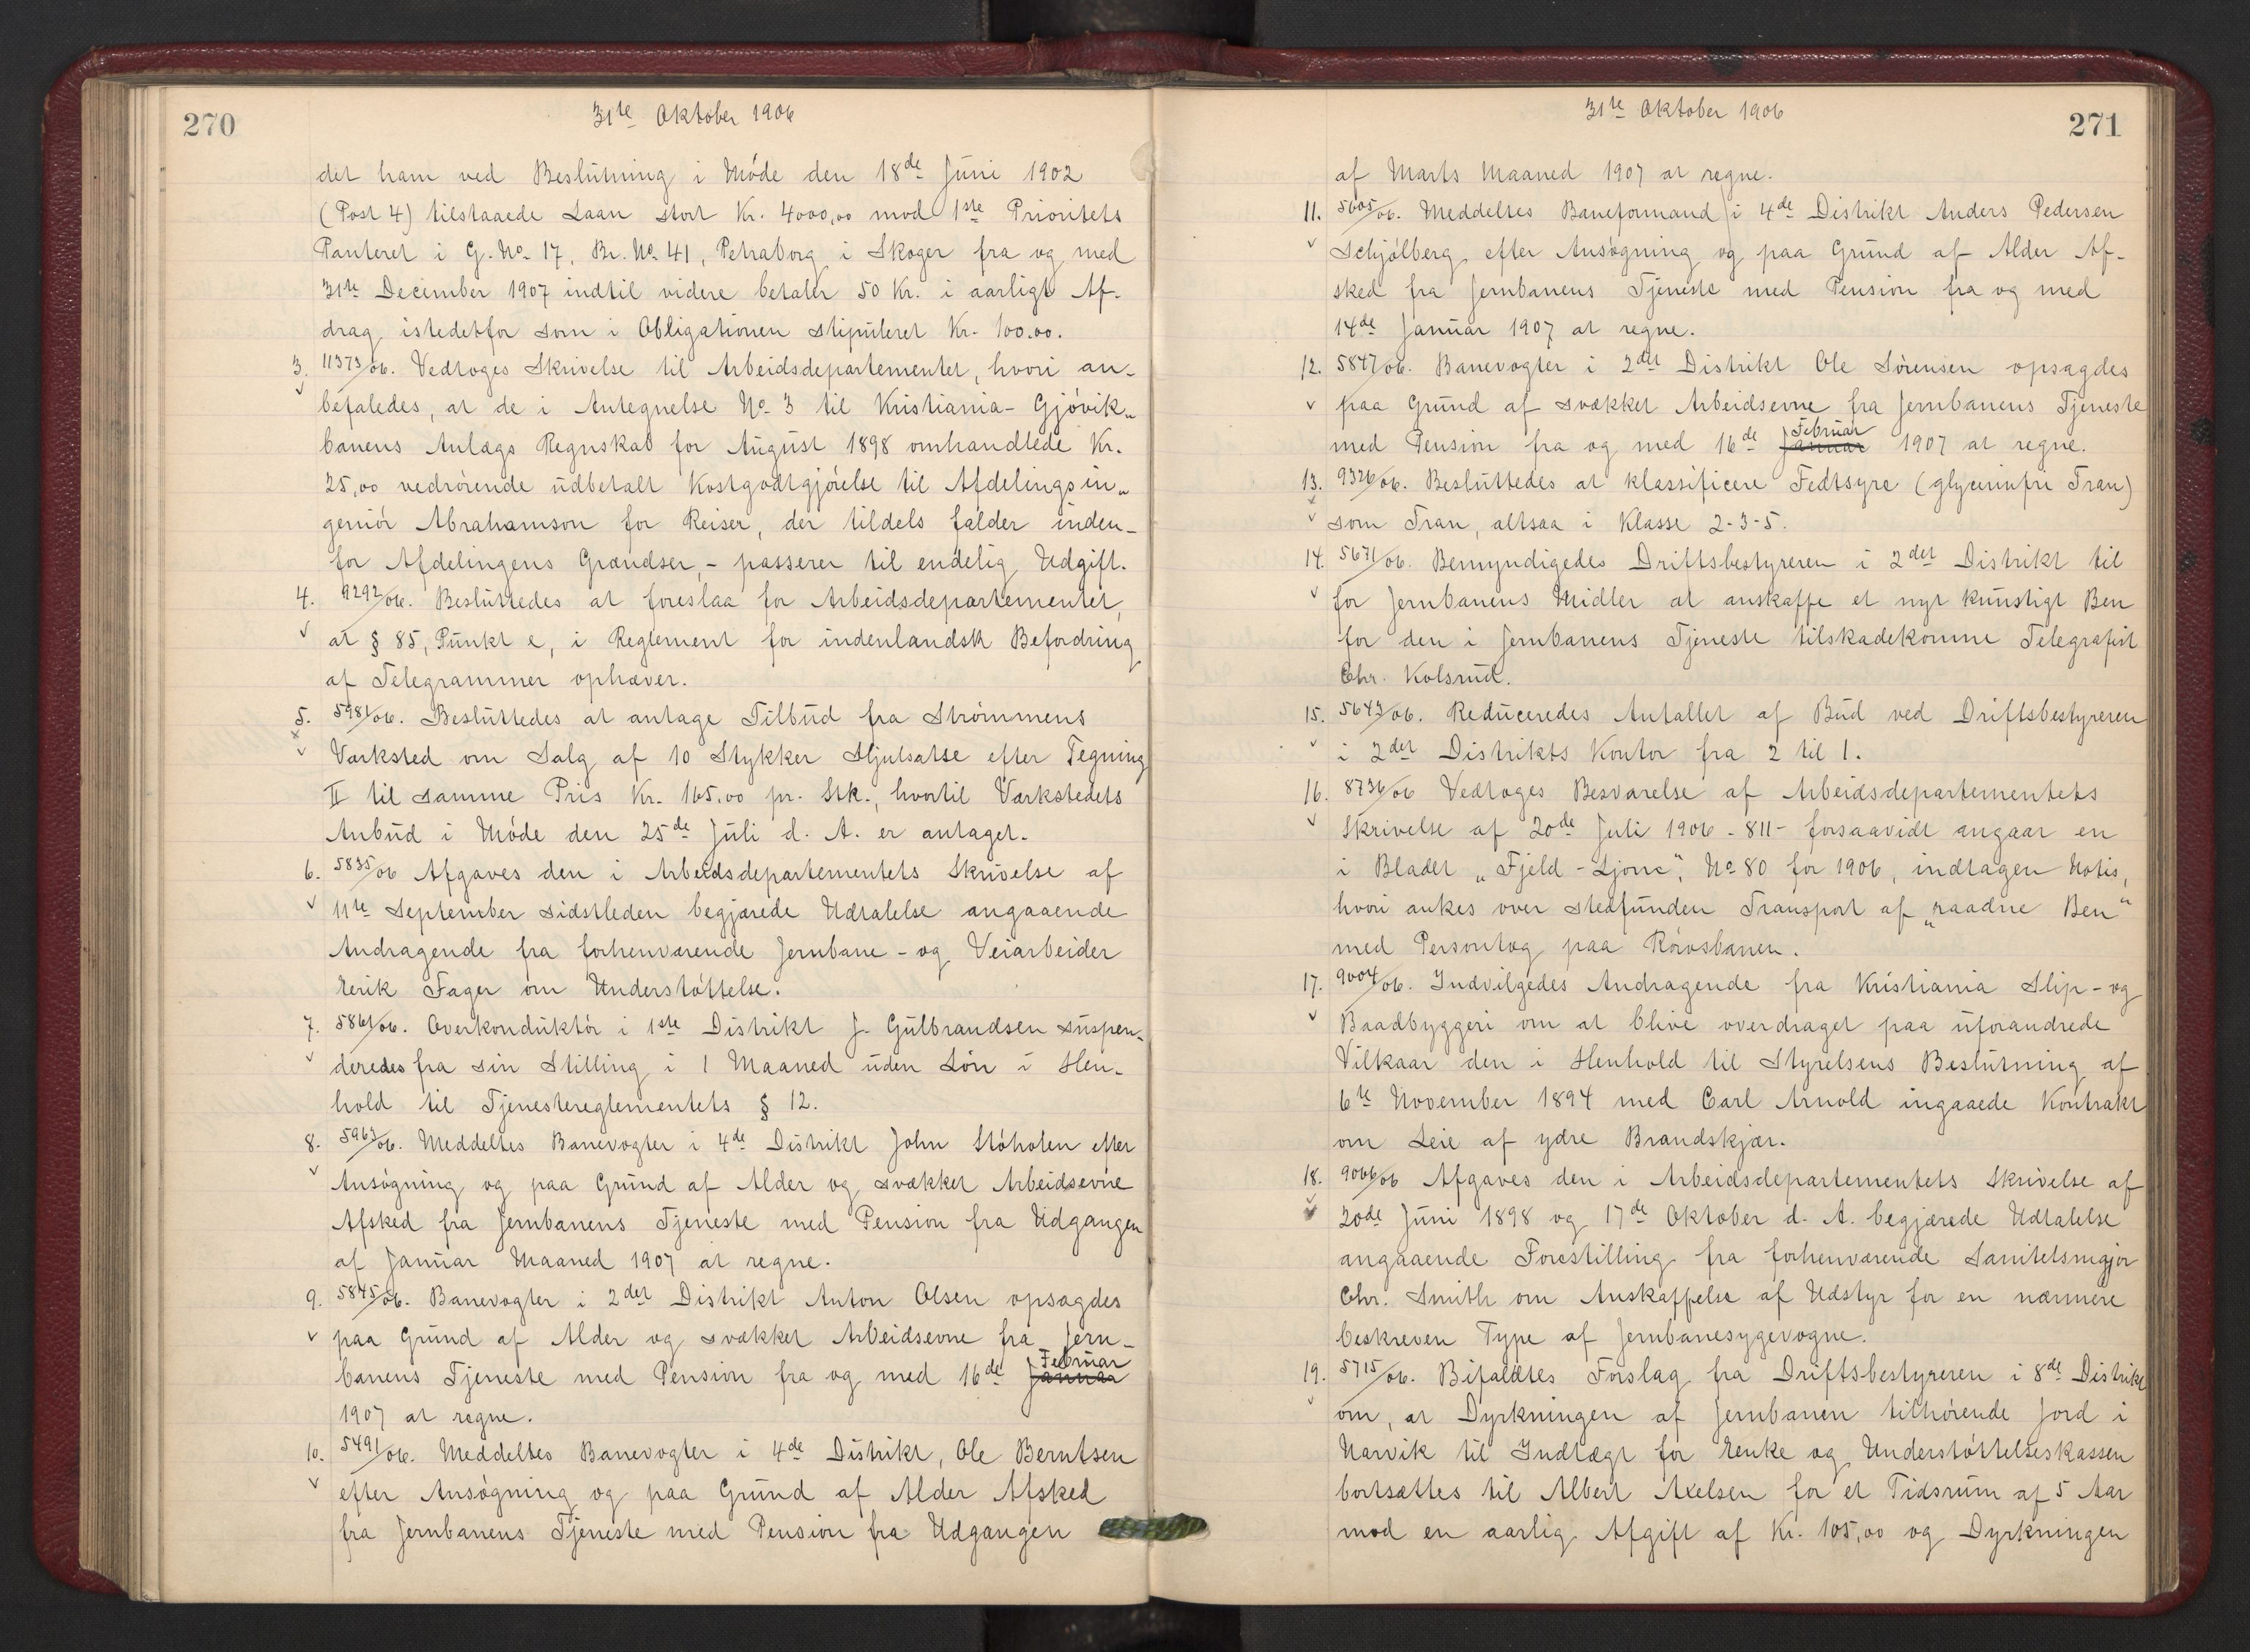 270
31te Oktober 1906
det ham ved Beslutning i Møde den 18de Juni 1902
(Post 4) tilstaaede Laan stort Kr. 4000,00 mod 1ste Prioritets
Panteret i G. No. 17, Br. No. 41, Petraborg i Skoger fra og med
31te December 1907 indtil videre betaler 50 Kr. i aarligt Af-
drag istedetfor som i Obligationen stipuleret Kr. 100.00.
3. 11373/06. Vedtoges Skrivelse til Arbeidsdepartementet, hvori an-
befaledes, at de i Antegnelse No. 3 til Kristiania-Gjøvik-
banens Anlægs Regnskab for August 1898 omhandlede Kr.
25,00 vedrørende udbetalt Kostgodtgjørelse til Afdelingsin-
geniør Abrahamson for Reiser, der tildels falder inden-
for Afdelingens Grændser, - passerer til endelig Udgift.
4. 9292/06. Besluttedes at foreslaa for Arbeidsdepartementet,
at § 85, Punkt e, i Reglement for indenlandsk Befordring
af Telegrammer ophæver.
5. 5981/06. Besluttedes at antage Tilbud fra Strømmens
Værksted om Salg af 10 Stykker Hjulsatse efter Tegning
II til samme Pris Kr. 165,00 pr. Stk., hvortil Værkstedets
Anbud i Møde den 25de Juli d. A. er antaget.
6. 5835/06 Afgaves den i Arbeidsdepartementets Skrivelse af
11te September sidstleden begjærede Udtalelse angaaende
Andragende fra forhenværende Jernbane- og Veiarbeider
Erik Fager om Understøttelse.
7. 5861/06. Overkonduktør i 1ste Distrikt J. Gulbrandsen suspen-
deredes fra sin Stilling i 1 Maaned uden Løn i Hen-
hold til Tjenestereglementets § 12.
8. 5963/06. Meddeltes Banevogter i 4de Distrikt John Støholen efter
Ansøgning og paa Grund af Alder og svækket Arbeidsevne
Afsked fra Jernbanens Tjeneste med Pension fra Udgangen
af Januar Maaned 1907 at regne.
9. 5845/06. Banevogter i 2det Distrikt Anton Olsen opsagdes
paa Grund af Alder og svækket Arbeidsevne fra Jern-
banens Tjeneste med Pension fra og med 16de Januar Februar
1907 at regne.
10. 5491/06. Meddeltes Banevogter i 4de Distrikt, Ole Berntsen
efter Ansøgning og paa Grund af Alder Afsked
fra Jernbanens Tjeneste med Pension fra Udgangen
31te Oktober 1906
271
af Marts Maaned 1907 at regne.
11. 5605/06. Meddeltes Baneformand i 4de Distrikt Anders Pedersen
Schjølberg efter Ansøgning og paa Grund af Alder Af-
sked fra Jernbanens Tjeneste med Pension fra og med
14de Januar 1907 at regne.
12. 5847/06. Banevogter i 2det Distrikt Ole Sørensen opsagdes
paa Grund af svækket Arbeidsevne fra Jernbanens Tjeneste
med Pension fra og med 16de Januar Februar 1907 at regne.
13. 9326/06. Besluttedes at klassificere Fedtsyre (glycerinfri Tran)
som Tran, altsaa i Klasse 2-3-5.
14. 5671/06. Bemyndigedes Driftsbestyreren i 2det Distrikt til
for Jernbanens Midler at anskaffe et nyt kunstigt Ben
for den i Jernbanens Tjeneste tilskadekomne Telegrafist
Chr. Kolsrud.
15. 5643/06. Reduceredes Antallet af Bud ved Driftsbestyreren
i 2det Distrikts Kontor fra 2 til 1.
16. 8736/06 Vedtoges Besvarelse af Arbeidsdepartementets
Skrivelse af 20de Juli 1906 - 811 - forsaavidt angaar en
i Bladet „Fjeld-Ljom", No 80 for 1906, indtagen Notis,
hvori ankes over stedfunden Transport af „raadne Ben"
med Persontog paa Rørosbanen.
17. 9004/06. Indvilgedes Andragende fra Kristiania Slip- og
Baadbyggeri om at blive overdraget paa uforandrede
Vilkaar den i Henhold til Styrelsens Beslutning af
6te November 1894 med Carl Arnold ingaaede Kontrakt
om Leie af ydre Brandskjær.
18. 9066/06 Afgaves den i Arbeidsdepartementets Skrivelse af
20de Juni 1898 og 17de Oktober d. A. begjærede Udtalelse
angaaende Forestilling fra forhenværende Sanitetsmajor
Chr. Smith om Anskaffelse af Udstyr for en nærmere
beskreven Type af Jernbanesygevogne.
19. 5715/06. Bifaldtes Forslag fra Driftsbestyreren i 8de Distrikt
om, at Dyrkningen af Jernbanen tilhørende Jord i
Narvik til Indtægt for Enke og Understøttelseskassen
bortsættes til Albert Axelsen for et Tidsrum af 5 Aar
mod en aarlig Afgift af Kr. 105,00 og Dyrkningen